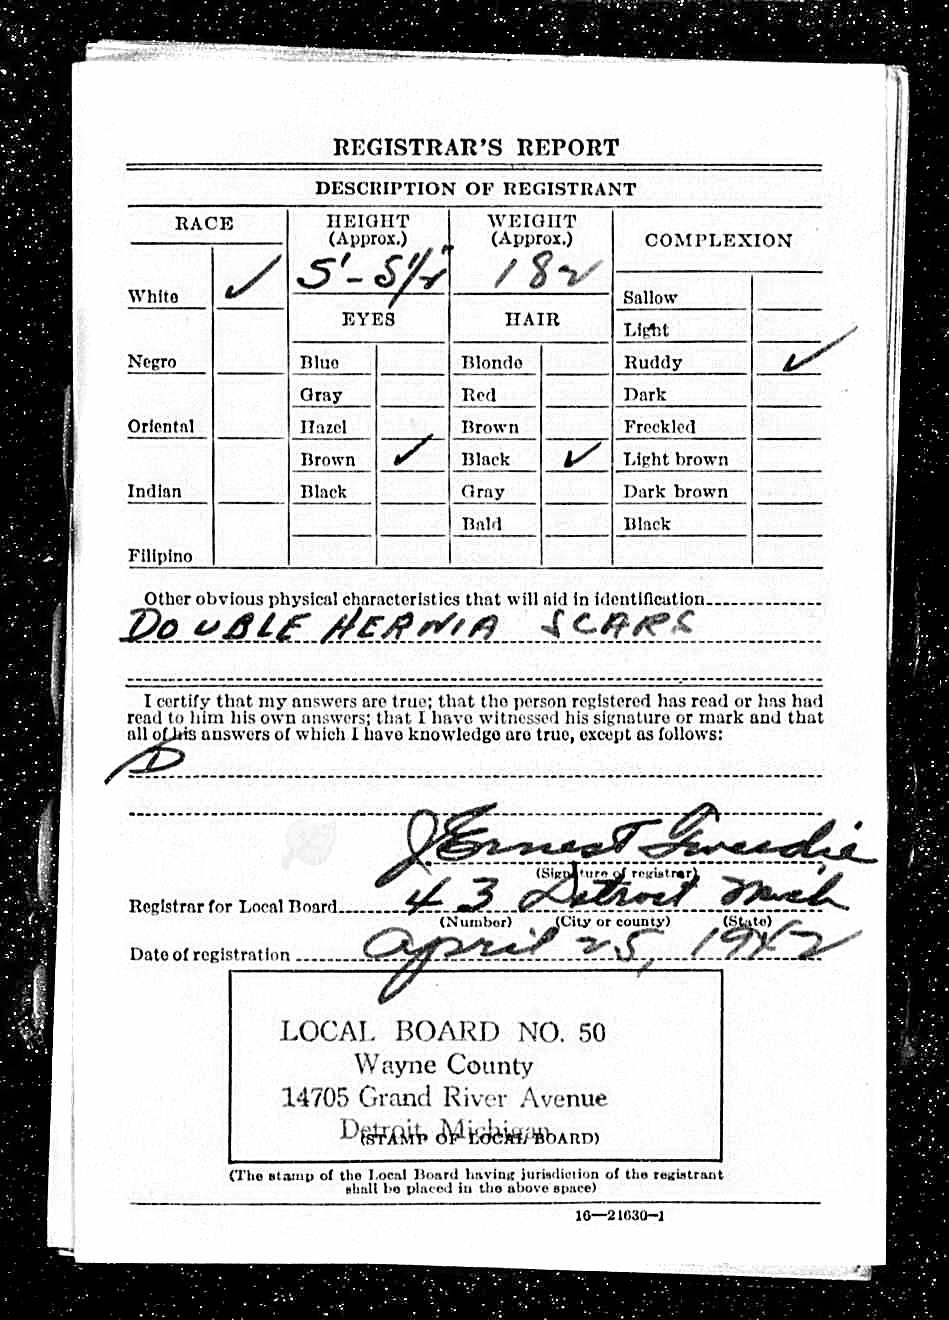 REGISTRAR'S REPORT
DESCRIPTION OF REGISTRANT
RACE
HEIGHT
(Approx.)
WEIGHT
(Approx.)
COMPLEXION
5'-5 1/2"
182
White ✓
EYES
HAIR
Sallow
Light
Negro
Blue
Blonde
Ruddy ✓
Gray
Red
Dark
Oriental
Hazel
Brown
Freckled
Brown ✓
Black ✓
Light brown
Indian
Black
Gray
Dark brown
Bald
Black
Filipino
Other obvious physical characteristics that will aid in identification
DOUBLE HERNIA SCARS
I certify that my answers are true; that the person registered has read or has had
read to him his own answers; that I have witnessed his signature or mark and that
all of his answers of which I have knowledge are true, except as follows:
J Ernest
(Signature of registrar)
Registrar for Local Board 43 Detroit Mich
(Number) (City or county) (State)
Date of registration April 25, 1942
LOCAL BOARD NO. 50
Wayne County
14705 Grand River Avenue
Detroit, Michigan
(STAMP OF LOCAL BOARD)
(The stamp of the Local Board having jurisdiction of the registrant
shall be placed in the above space)
16—21630-1